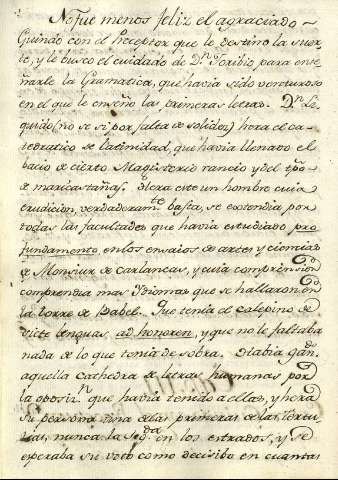 No fue menos feliz el agraciado
Guindo con el Preceptor que le destino la suer-
te, y le busco el cuidado de Dn. Toribio para ense
ñarle la Gramatica, que havia sido venturoso
en el que le enseño las primeras letras. Dn. Li
quido (no se si por falta de solidez) hera el ca-
tedratico de latinidad, que havia llenado el
bacio de cierto Magisterio rancio y del tpo.
de maricastañas. Hera este un hombre cuia
erudicion verdaderamte. basta, se extendia por
todas las facultades que havia estudiado pro
fundamento, en los ensaios de artes y ciencias
de Monsiur de Carlancas, y cuia comprension
comprendia mas Ydiomas que se hallaron en
la torre de Babel. Que tenia el calepino de
siete lenguas, ad honorem, y que no le faltaba
nada de lo que tenia de sobra. Havia gando.
aquella Cathedra de letras humanas por
la oposin. que havia tenido a ellas, y hera
su persona una de las primeras de las tertu-
lias, nunca la segda. en los estrados, y se
esperaba su voto como decisibo en cuantas